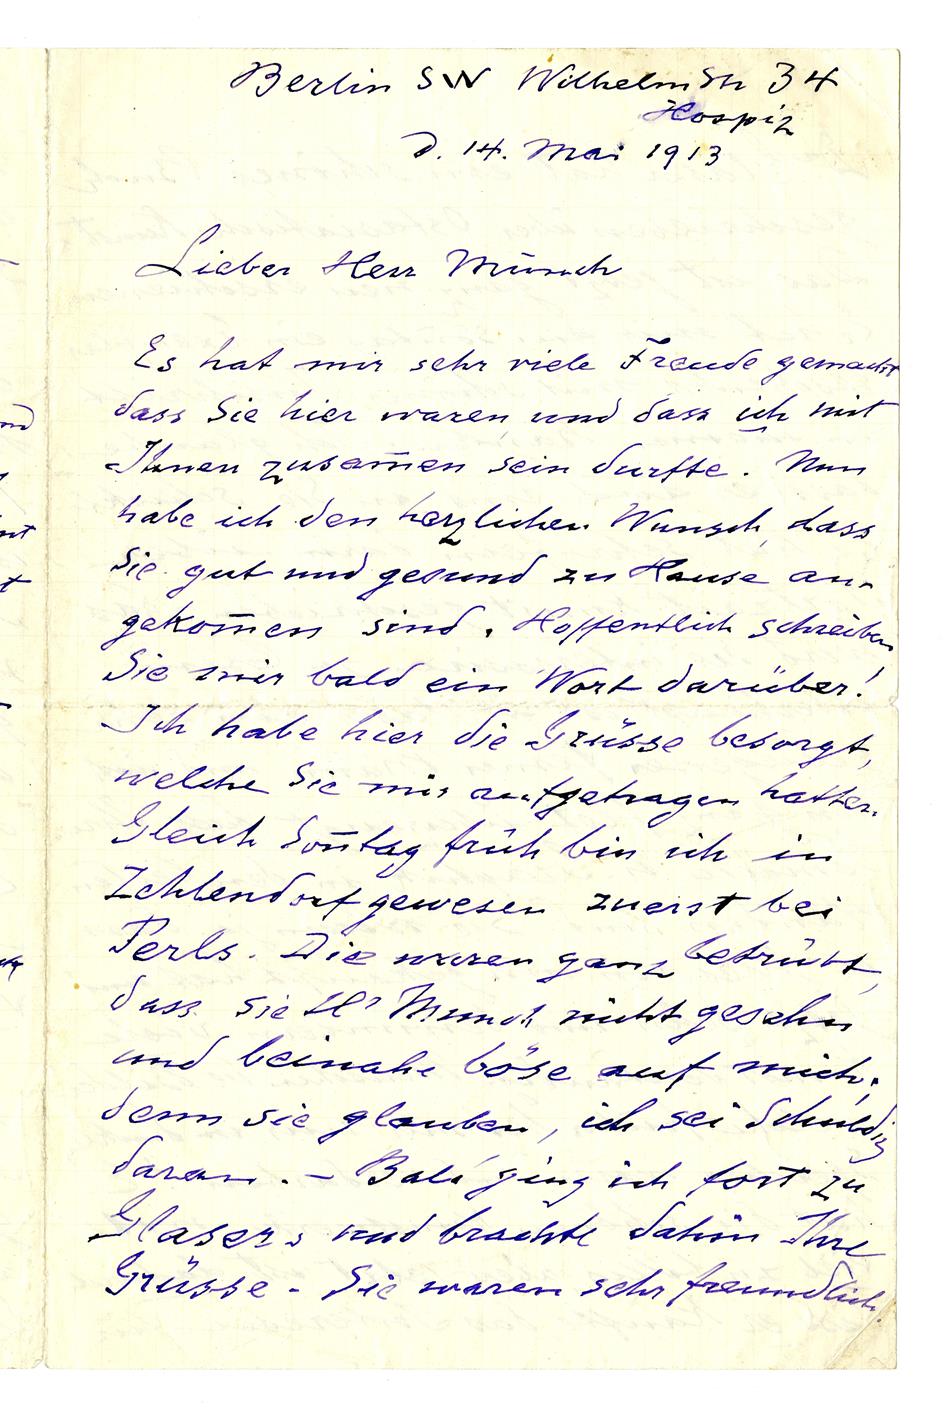 Berlin SW Wilhelmstr 34
Hospiz
d. 14. Mai 1913
Lieber Herr Munch
Es hat mir sehr viele Freude gemacht
dass Sie hier waren und dass ich mit
Ihnen zusam̄en sein durfte. Nun
habe ich den herzlichen Wunsch, dass
Sie gut und gesund zu Hause an-
gekom̄en sind. Hoffentlich schreiben
Sie mir bald ein Wort darüber!
Ich habe hier die Grüsse besorgt,
welche Sie mir aufgetragen hatten.
Gleich Son̄tag früh bin ich in
Zehlendorf gewesen zuerst bei
Perls. Die waren ganz betrübt,
dass sie Hr Munch nicht gesehn
und beinahe böse auf mich,
denn sie glauben, ich sei Schuldig
daran. – Bald ging ich fort zu
Glasers und brachte dahin Ihre
Grüsse – Sie waren sehr freundlich.